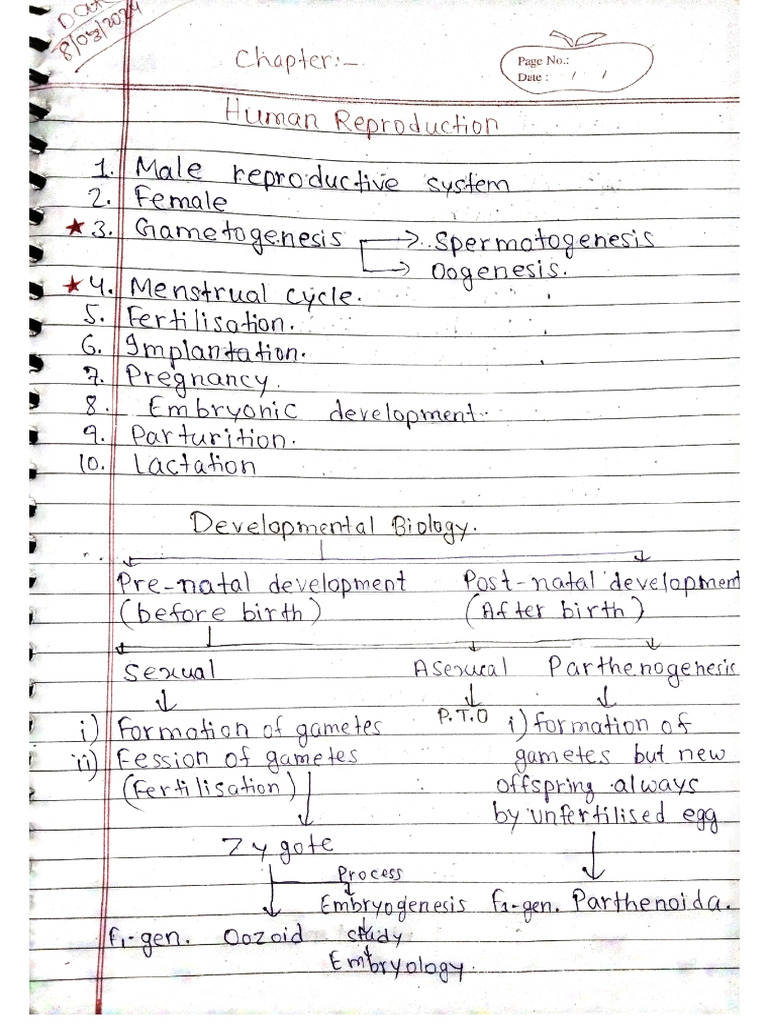 Date
8/03/2024
Chapter:-
Page No.:
Date : / /
Human Reproduction
1. Male reproductive system
2. Female
★3. Gametogenesis → Spermatogenesis
→ Oogenesis.
★4. Menstrual cycle.
5. Fertilisation.
6. Implantation.
7. Pregnancy.
8. Embryonic development.
9. Parturition.
10. Lactation
Developmental Biology.
Pre-natal development Post-natal development
(before birth) (After birth)
Sexual Asexucal Parthenogenesis
i) Formation of gametes P.T.O i) formation of
ii) Fession of gametes gametes but new
(Fertilisation) offspring always
by unfertilised egg
Zygote
Process
Embryogenesis f1-gen. Parthenoida.
f1-gen. Oozoid study
Embryology.